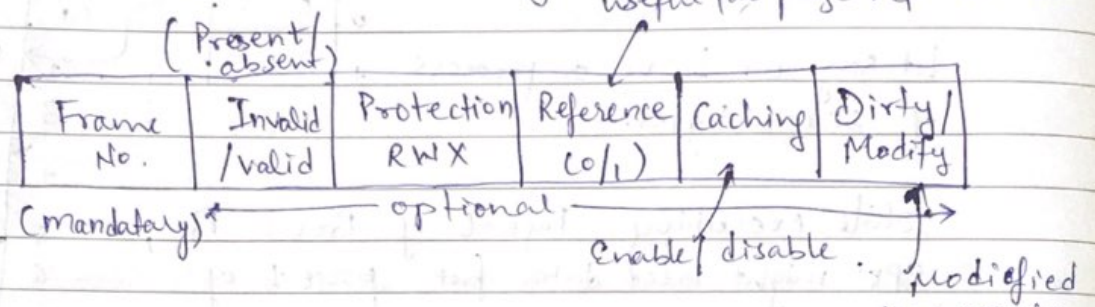 useful
(Present/
absent)
Frame
No.
Invalid
/valid
Protection
RWX
Reference
(0/1)
Caching
Dirty/
Modify
(mandataly)
optional
Enable/ disable.
Modiefied